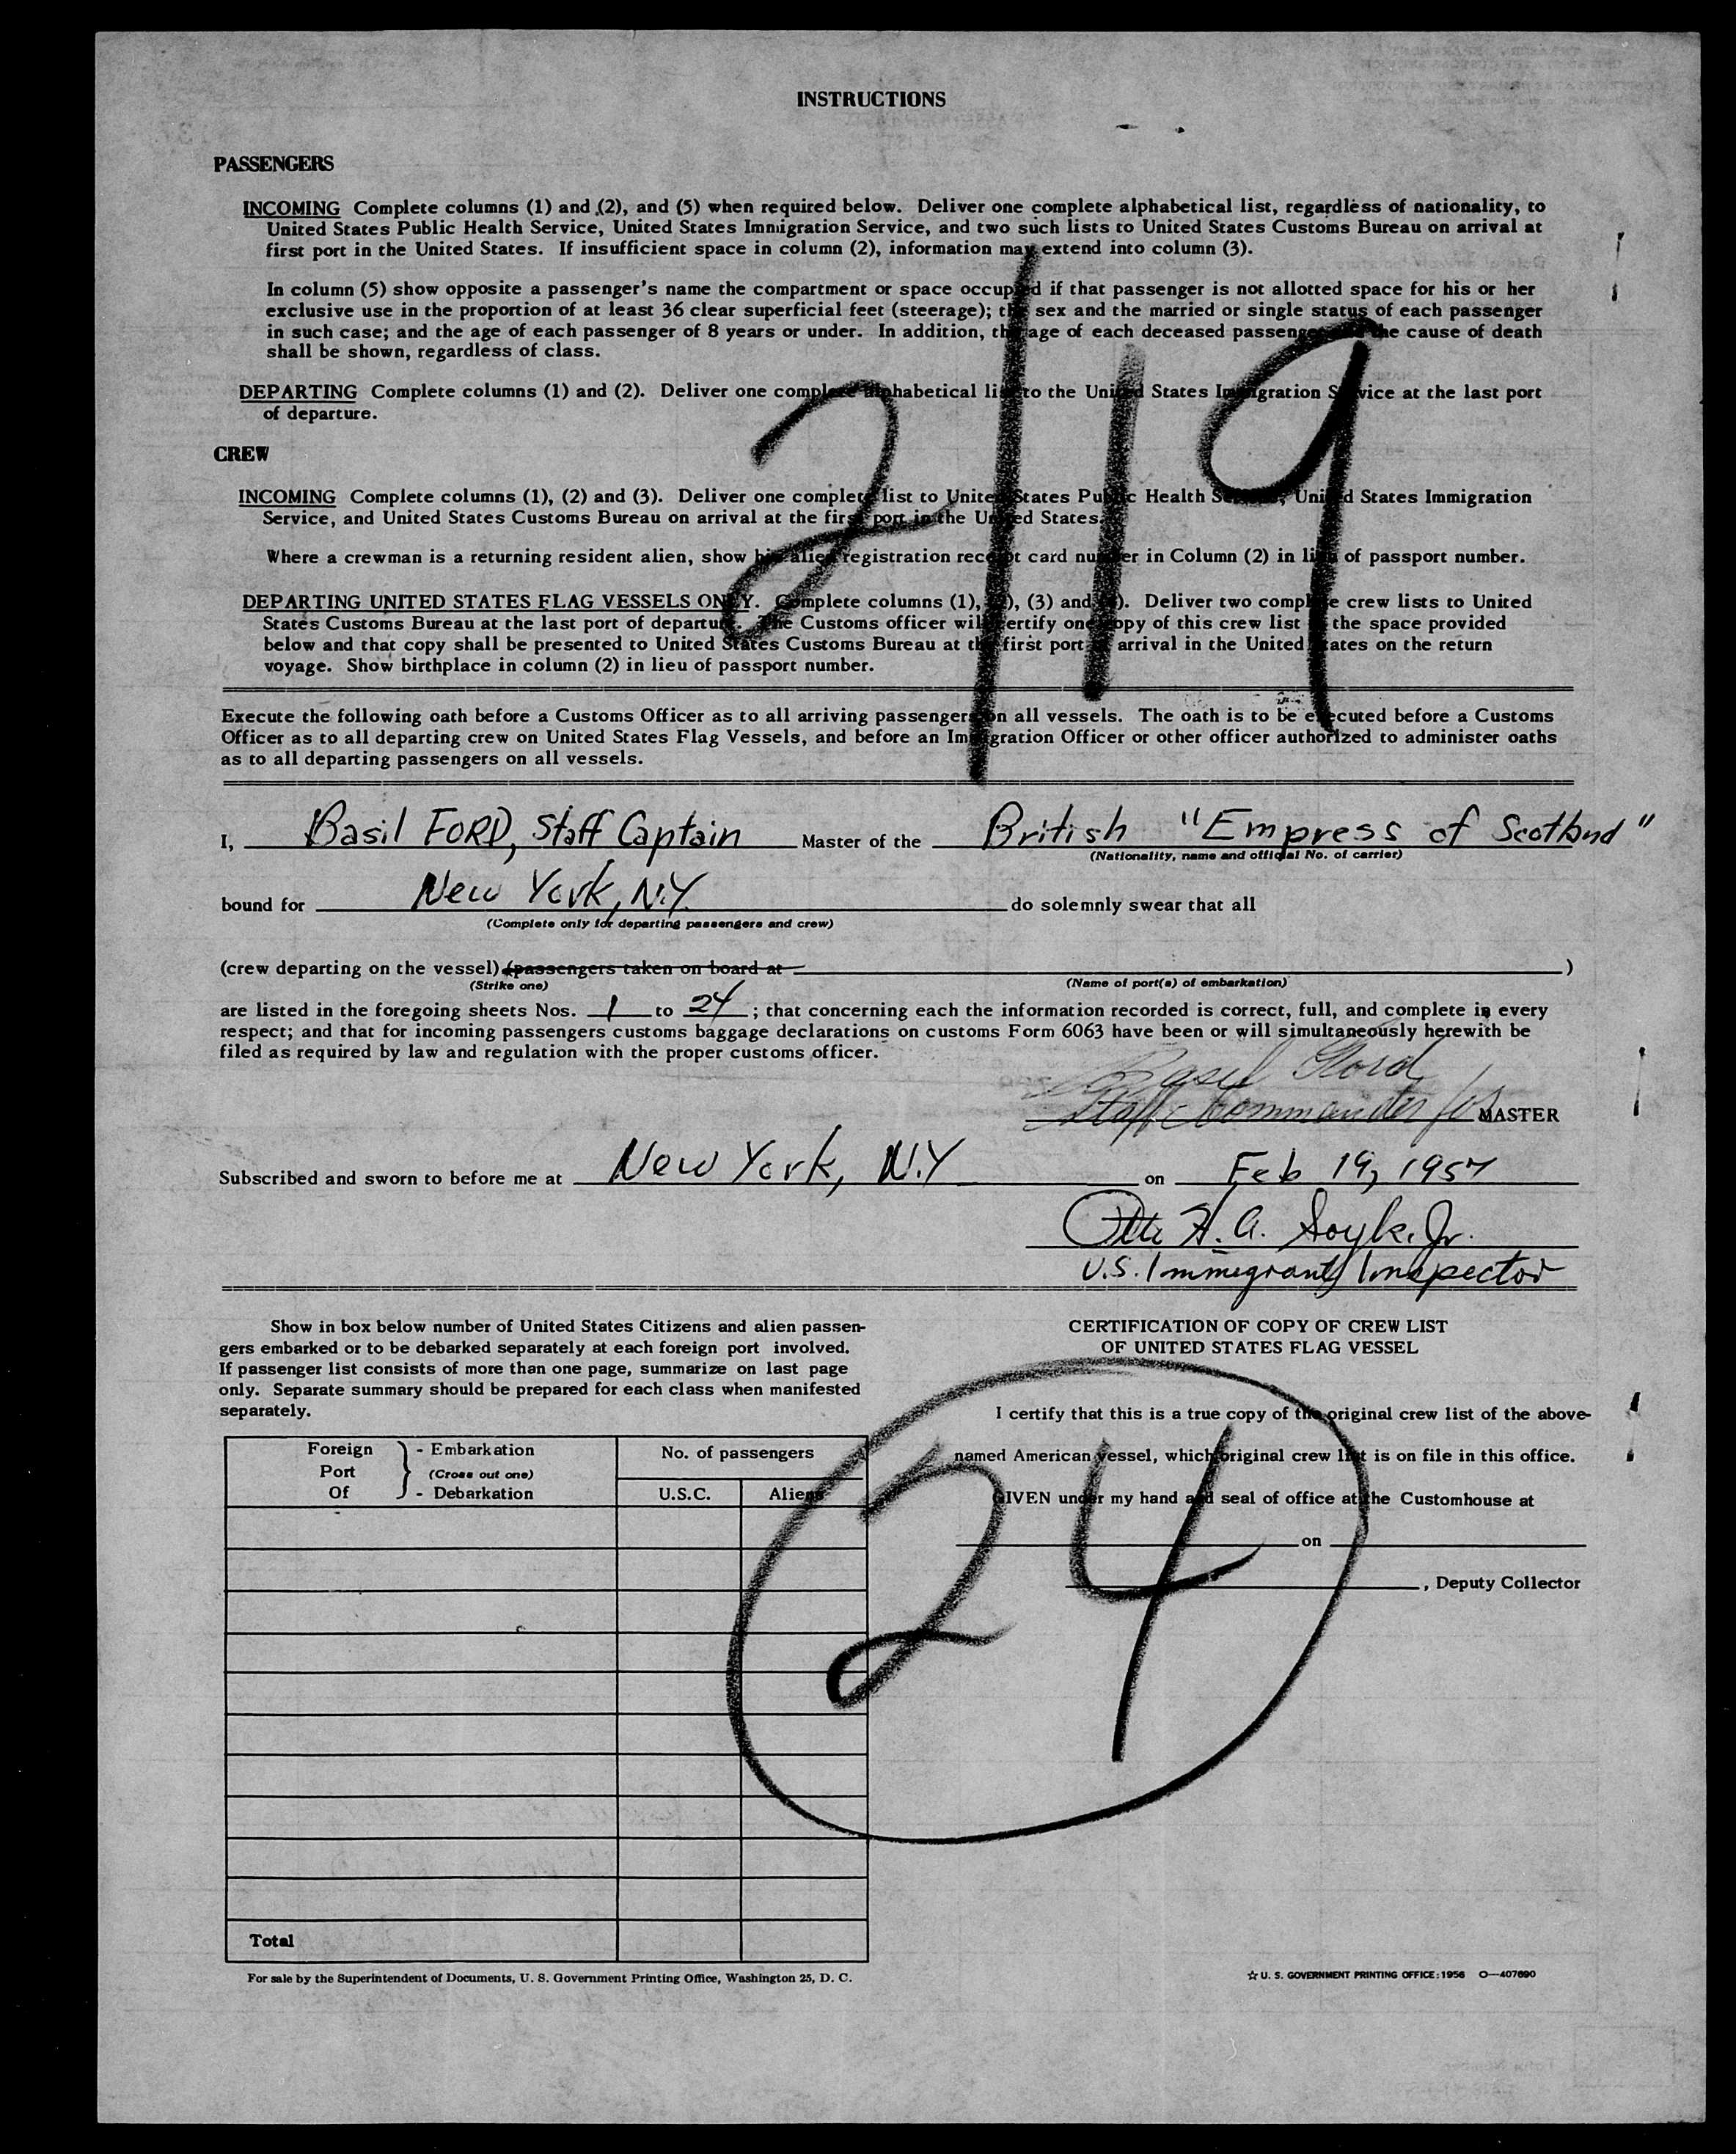 INSTRUCTIONS
PASSENGERS
INCOMING Complete columns (1) and (2), and (5) when required below. Deliver one complete alphabetical list, regardless of nationality, to
United States Public Health Service, United States Immigration Service, and two such lists to United States Customs Bureau on arrival at
first port in the United States. If insufficient space in column (2), information may extend into column (3).
In column (5) show opposite a passenger's name the compartment or space occupied if that passenger is not allotted space for his or her
exclusive use in the proportion of at least 36 clear superficial feet (steerage); the sex and the married or single status of each passenger
in such case; and the age of each passenger of 8 years or under. In addition, the age of each deceased passenger and the cause of death
shall be shown, regardless of class.
DEPARTING Complete columns (1) and (2). Deliver one complete alphabetical list to the United States Immigration Service at the last port
of departure.
2/19
CREW
INCOMING Complete columns (1), (2) and (3). Deliver one complete list to United States Public Health Service, United States Immigration
Service, and United States Customs Bureau on arrival at the first port in the United States.
Where a crewman is a returning resident alien, show his alien registration receipt card number in Column (2) in lieu of passport number.
DEPARTING UNITED STATES FLAG VESSELS ONLY. Complete columns (1), (2), (3) and (4). Deliver two complete crew lists to United
States Customs Bureau at the last port of departure. The Customs officer will certify one copy of this crew list in the space provided
below and that copy shall be presented to United States Customs Bureau at the first port of arrival in the United States on the return
voyage. Show birthplace in column (2) in lieu of passport number.
Execute the following oath before a Customs Officer as to all arriving passengers on all vessels. The oath is to be executed before a Customs
Officer as to all departing crew on United States Flag Vessels, and before an Immigration Officer or other officer authorized to administer oaths
as to all departing passengers on all vessels.
I, Basil FORD, Staff Captain Master of the British "Empress of Scotland"
(Nationality, name and official No. of carrier)
bound for New York, N.Y. do solemnly swear that all
(Complete only for departing passengers and crew)
(crew departing on the vessel) (passengers taken on board at )
(Strike one) (Name of port(s) of embarkation)
are listed in the foregoing sheets Nos. 1 to 24 ; that concerning each the information recorded is correct, full, and complete in every
respect; and that for incoming passengers customs baggage declarations on customs Form 6063 have been or will simultaneously herewith be
filed as required by law and regulation with the proper customs officer.
Basil Ford
Staff Commander for MASTER
Subscribed and sworn to before me at New York, N.Y on Feb 19, 1957
Otto H. A. Soyk. Jr.
U.S. Immigrant Inspector
Show in box below number of United States Citizens and alien passen-
gers embarked or to be debarked separately at each foreign port involved.
If passenger list consists of more than one page, summarize on last page
only. Separate summary should be prepared for each class when manifested
separately.
Foreign - Embarkation No. of passengers
Port (Cross out one)
Of - Debarkation U.S.C. Aliens
Total
For sale by the Superintendent of Documents, U. S. Government Printing Office, Washington 25, D. C.
CERTIFICATION OF COPY OF CREW LIST
OF UNITED STATES FLAG VESSEL
I certify that this is a true copy of the original crew list of the above-
named American vessel, which original crew list is on file in this office.
GIVEN under my hand and seal of office at the Customhouse at
on
, Deputy Collector
24
☆ U. S. GOVERNMENT PRINTING OFFICE: 1956 O—407690